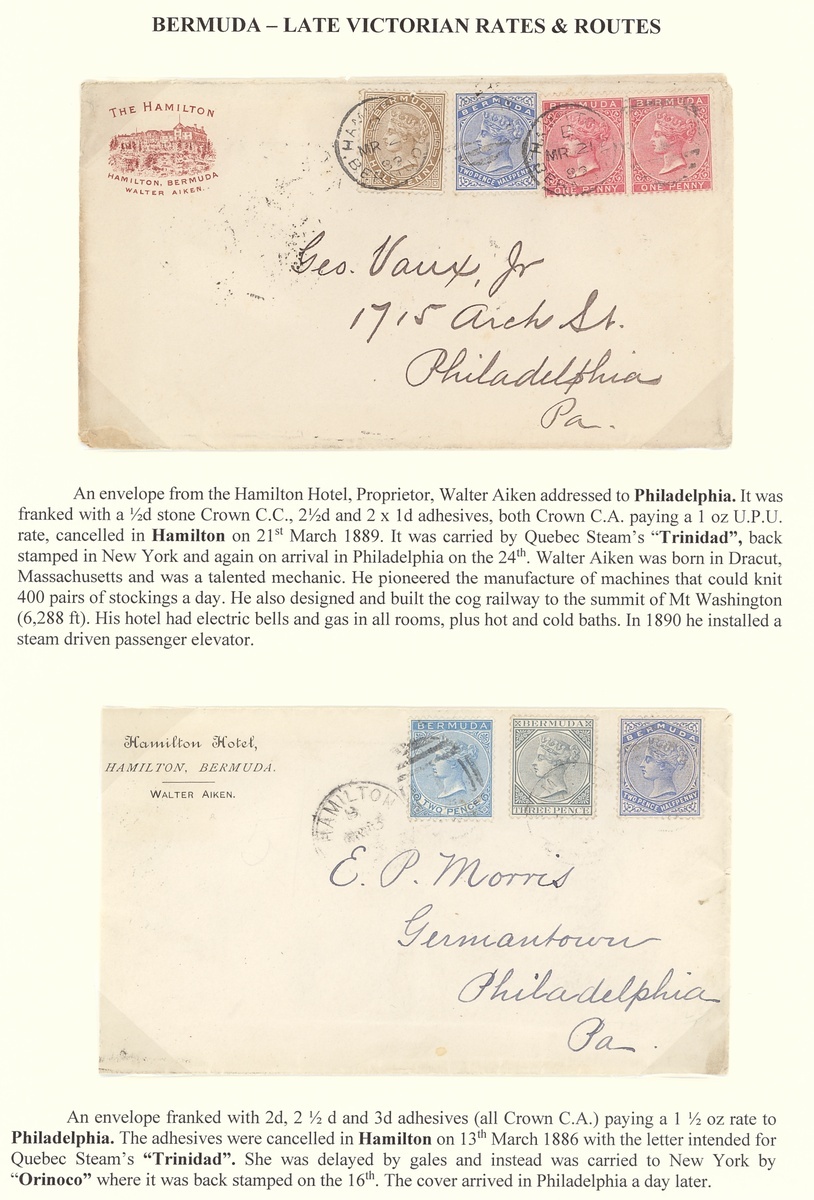 BERMUDA – LATE VICTORIAN RATES & ROUTES
THE HAMILTON
HAMILTON, BERMUDA
WALTER AIKEN.
BERMUDA
HALF PENNY
BERMUDA
TWO PENCE HALFPENNY
BERMUDA
ONE PENNY
BERMUDA
ONE PENNY
MR 21
Geo. Vaux, Jr
1715 Arch St.
Philadelphia
Pa.
An envelope from the Hamilton Hotel, Proprietor, Walter Aiken addressed to Philadelphia. It was
franked with a ½d stone Crown C.C., 2½d and 2 x 1d adhesives, both Crown C.A. paying a 1 oz U.P.U.
rate, cancelled in Hamilton on 21st March 1889. It was carried by Quebec Steam’s “Trinidad”, back
stamped in New York and again on arrival in Philadelphia on the 24th. Walter Aiken was born in Dracut,
Massachusetts and was a talented mechanic. He pioneered the manufacture of machines that could knit
400 pairs of stockings a day. He also designed and built the cog railway to the summit of Mt Washington
(6,288 ft). His hotel had electric bells and gas in all rooms, plus hot and cold baths. In 1890 he installed a
steam driven passenger elevator.
Hamilton Hotel,
HAMILTON, BERMUDA.
WALTER AIKEN.
HAMILTON
BERMUDA
TWO PENCE
BERMUDA
THREE PENCE
BERMUDA
TWO PENCE HALFPENNY
E. P. Morris
Germantown
Philadelphia
Pa.
An envelope franked with 2d, 2 ½ d and 3d adhesives (all Crown C.A.) paying a 1 ½ oz rate to
Philadelphia. The adhesives were cancelled in Hamilton on 13th March 1886 with the letter intended for
Quebec Steam’s “Trinidad”. She was delayed by gales and instead was carried to New York by
“Orinoco” where it was back stamped on the 16th. The cover arrived in Philadelphia a day later.